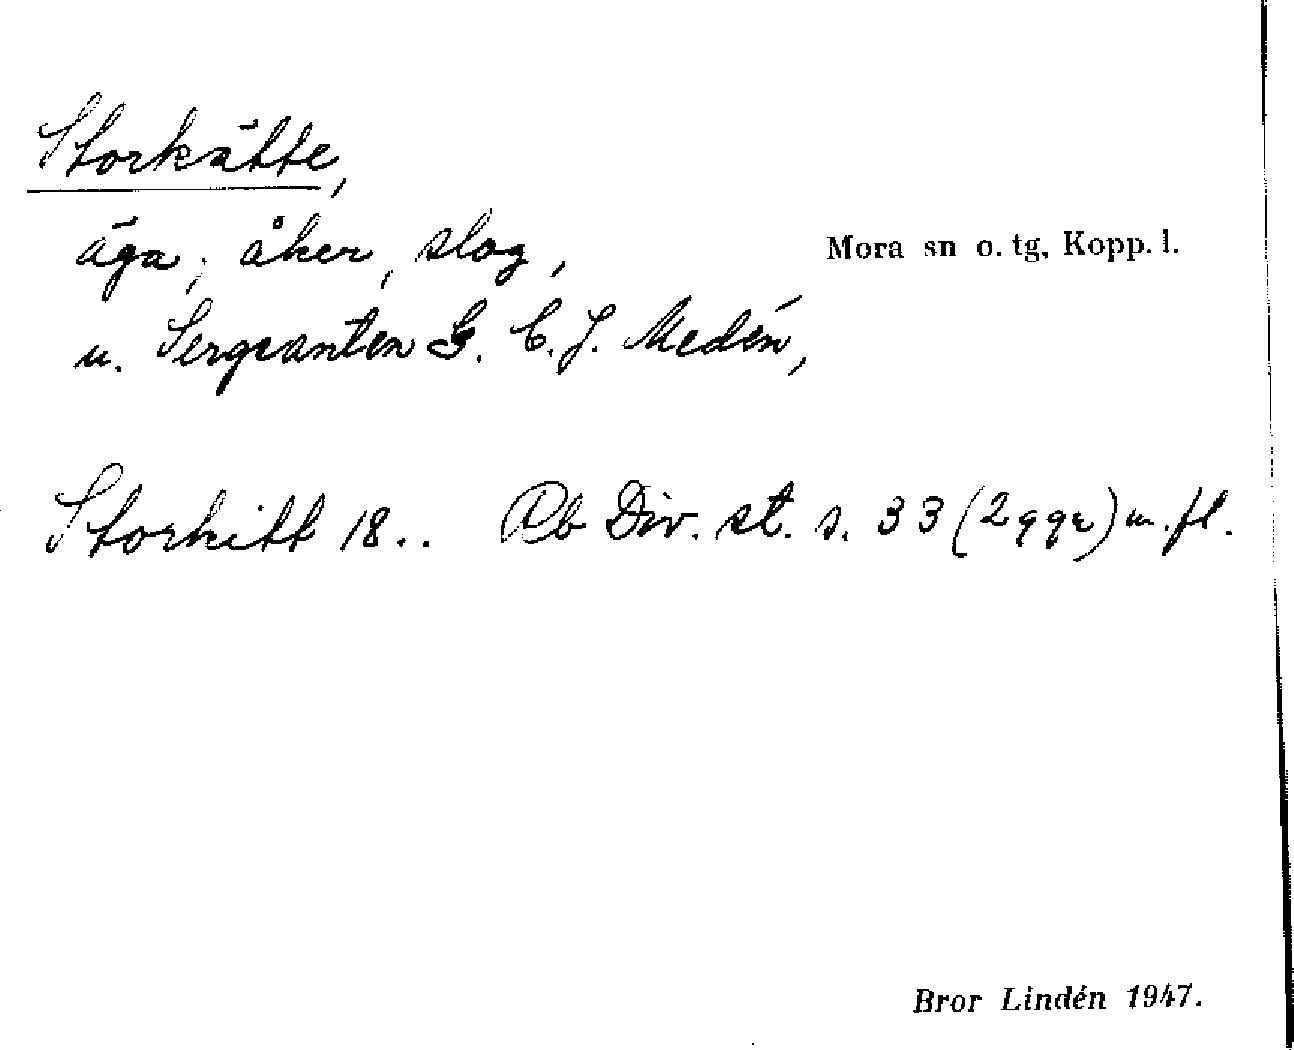 Storkätte,
äga; åker, slog,
Mora sn o. tg, Kopp. l.
u. Sergeanten G. C. J. Medén,
Storkitt 18.. Rb Div. st. s. 33 (2 ggr) m. fl.
Bror Lindén 1947.